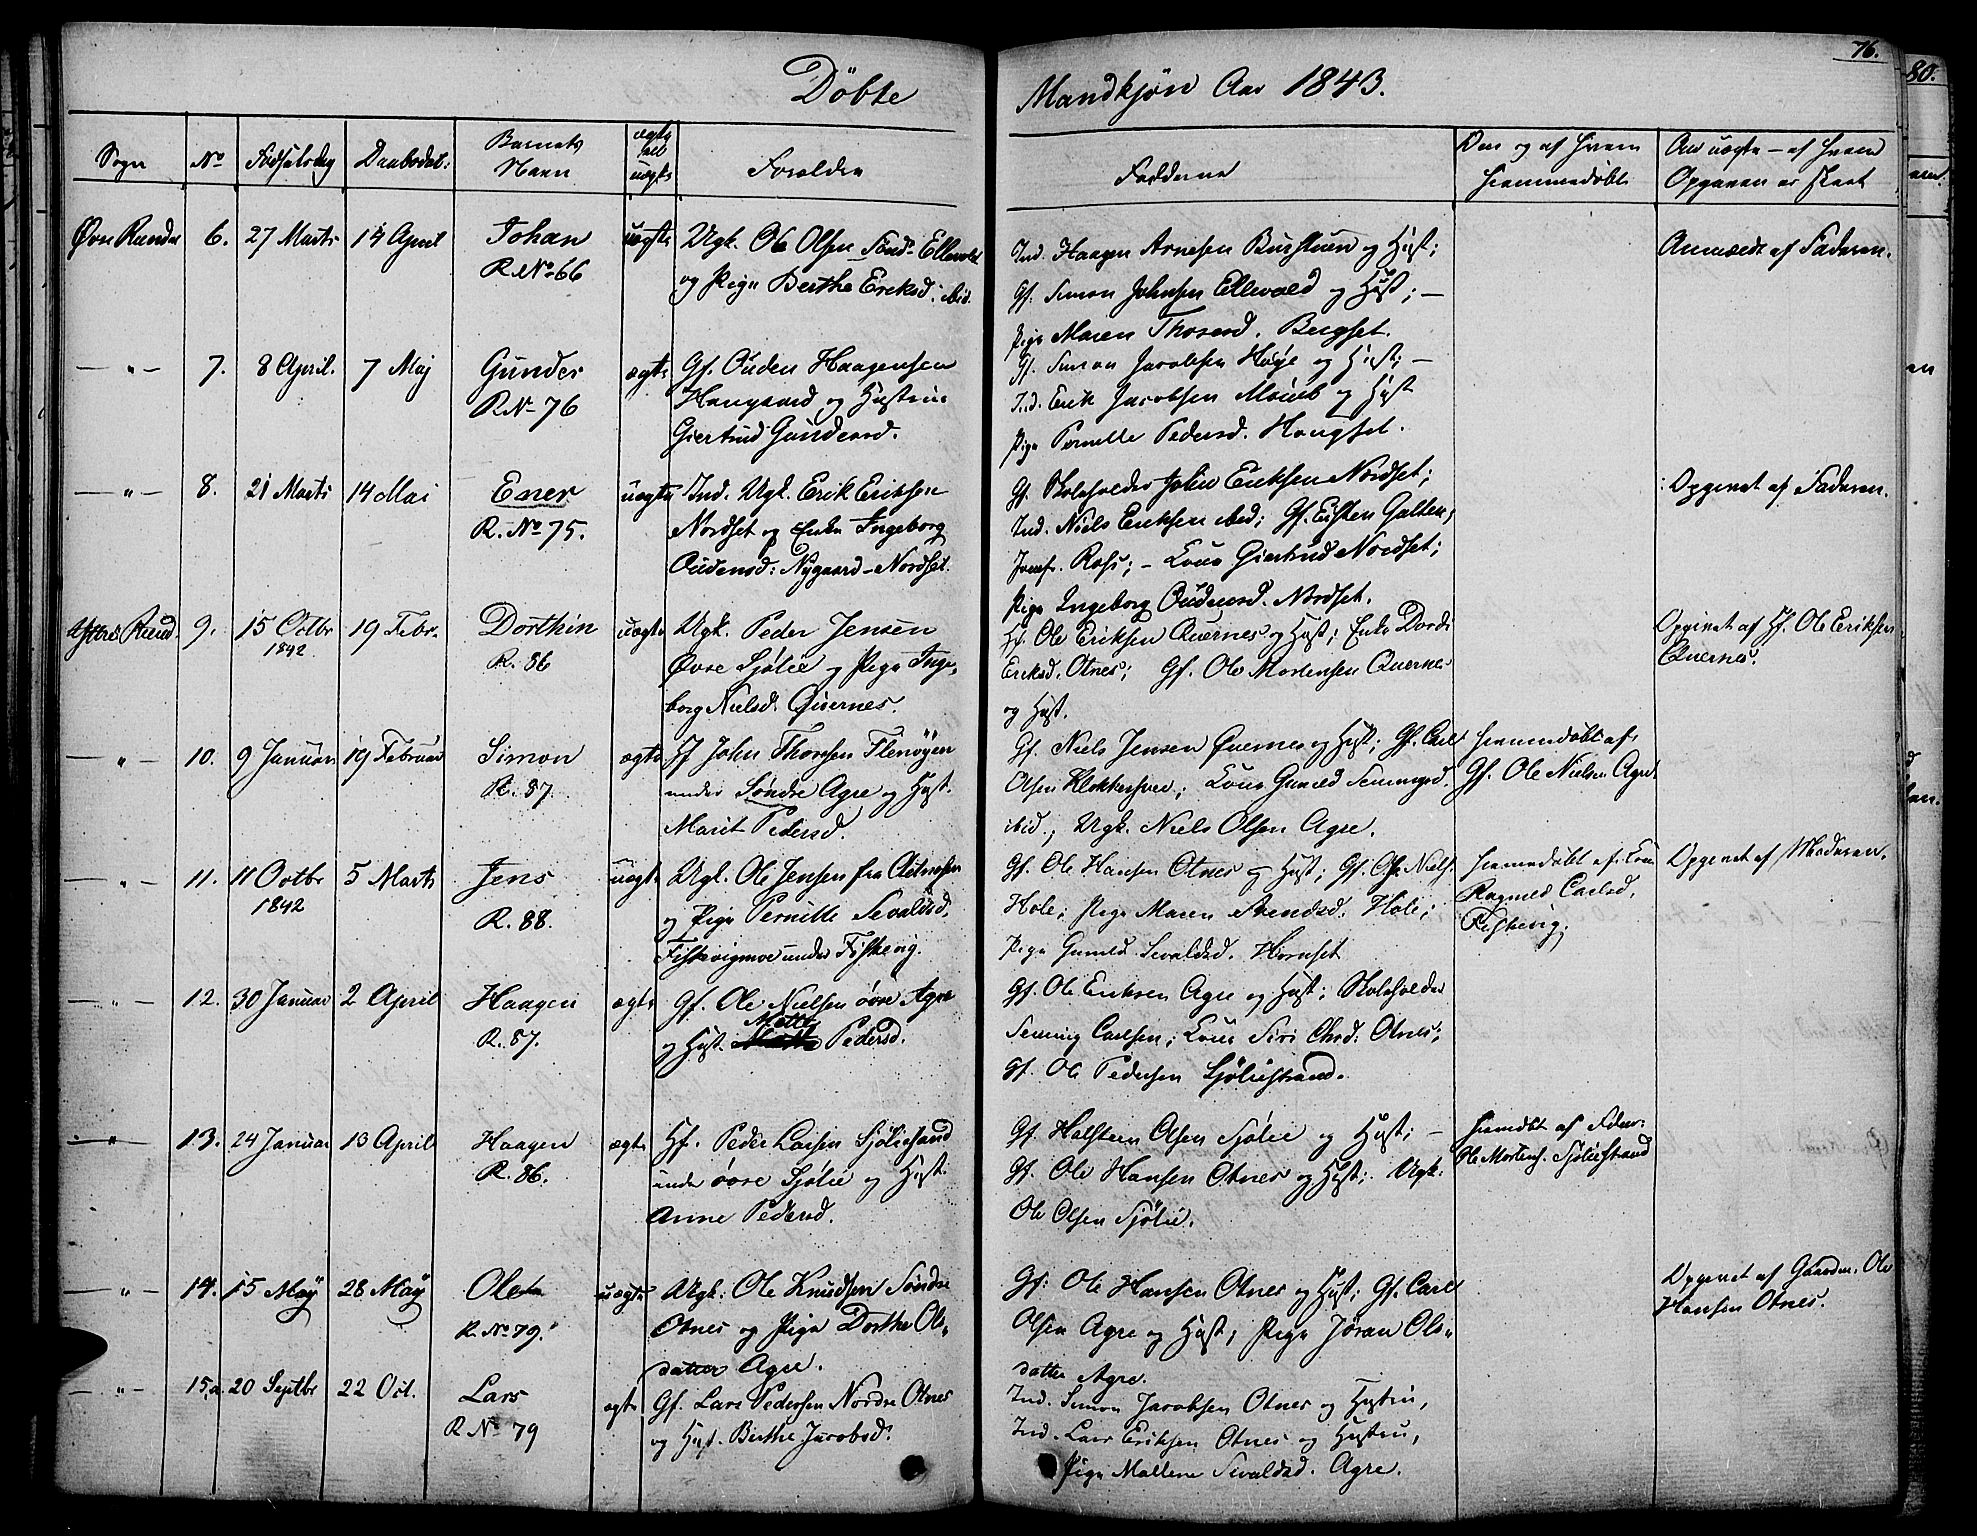 76.
80.
Döbte Mandkjøn Aar 1843.
Sogn No Födselsdag Daabsdat: Barnets Navn ægte ell uægte Forældre Fadderne Om og af hvem hjemmedøbt Om uægte – af hvem Opgaven er skeet
Øvre Rendal 6. 27 Marts 14 April Johan uægte Ugk. Ole Olsen Sønd. Ellevold
R. No 66 og Pige Berthe Eriksd. ibid.
Ind. Haagen Arnesen Burstuen og Hust;
Gf. Simon Johnsen Ellevold og Hust; –
Pige Maren Thoresd. Bergset.
Anmeldt af Faderen.
– " – 7. 8 April. 7 Maj Gunder ægte Gf. Ouden Haagensen
R No 76 Haugaard og Hustrue
Giertrud Gundersd.
Gf. Simon Jacobsen Høye og Hust; –
Ind. Erik Jacobsen Moueb og Hust
Pige Pernille Pedersd. Haugset.
– " – 8. 21 Marts 14 Mai Ener uægte Ind. Ugk. Erik Eriksen
R. No 75. Nordset og Enke Ingeborg
Oudensd: Nygaard – Nordset.
Gf. Skoleholder John Eriksen Nordset;
Ind. Niels Eriksen ibid; Gf. Eisten Galten;
Jomfr. Ross; – Kone Giertrud Nordset;
Pige Ingeborg Oudensd. Nordset.
Opgivet af Faderen.
Yttre Rend. 9. 15 Octbr 1842 19 Febr. Dorthin uægte Ugk. Peder Jensen
R. 86 Øvre Sjølie og Pige Inge-
borg Nielsd. Qvernes.
Hf. Ole Eriksen Qvernes og Hust; Enke Dordi
Eriksd. Otnes; Gf. Ole Mortensen Qvernes
og Hust.
Opgivet af Hf. Ole Eriksen
Qvernes.
– " – 10. 9 Januar 19 Februar Simon ægte Hf John Thorsen Flenøyen
R. 87. under Søndre Agre og Hust.
Marit Pedersd.
Gf. Niels Jensen Qvernes og Hust; Gf. Carl
Olsen Klokkerhuee; Kone Gunild Semmingsd.
ibid.; Ugk. Niels Olsen Agre.
hjemmedøbt af
Gf. Ole Nielsen Agre
– " – 11. 11 Octbr 1842 5 Marts Jens uægte Ugk. Ole Jensen fra
R. 88. og Pige Pernille Sevaldsd.
Fiskevigmoe under Fiskevig.
Gf. Ole Hansen Otnes og Hust; Gf. Ole Niels.
Hole; Pige Maren Svendsd. Hole;
Pige Gunild Sevaldsd. Hornset
hjemmedøbt af Kone
Ragnild Carlsd.
Fiskevig.
Opgivet af Moderen.
– " – 12. 30 Januar 2 April Haagen ægte Gf. Ole Nielsen øvre Agre
R. 87. og Hust. Mette Pedersd.
Gf. Ole Eriksen Agre og Hust; Skoleholder
Semming Carlsen; Kone Siri Olsd. Otnes;
Gf. Ole Pedersen Sjøliestrand.
– " – 13. 24 Januar 13 April Haagen ægte Hf. Peder Larsen Sjøliesand
R. 86. under øvre Sjølie og Hust.
Anne Pedersd.
Gf. Halsteen Olsen Sjølie og Hust; –
Gf. Ole Hansen Otnes og Hust; Ugk.
Ole Olsen Sjølie.
hjemdbt af
Ole Mortens. Sjøliestrand
– " – 14. 15 Maÿ 28 Maÿ Ole uægte Ugk. Ole Knudsen Søndre
R. No 79. Otnes og Pige Dorthe Ols-
datter Agre.
Gf. Ole Hansen Otnes og Hust; Gf. Carl
Olsen Agre og Hust; Pige Jøran Ols-
datter Agre.
Opgivet af Gaardm. Ole
Hansen Otnes.
– " – 15,a 20 Septbr 22 Oct. Lars ægte Gf. Lars Pedersen Nordre Otnes
R No 79 og Hust. Berthe Jacobsd.
Ind. Simon Jacobsen Otnes og Hustru,
Ind. Lars Eriksen Otnes og Hustru,
Pige Mallene Sevaldsd. Agre.